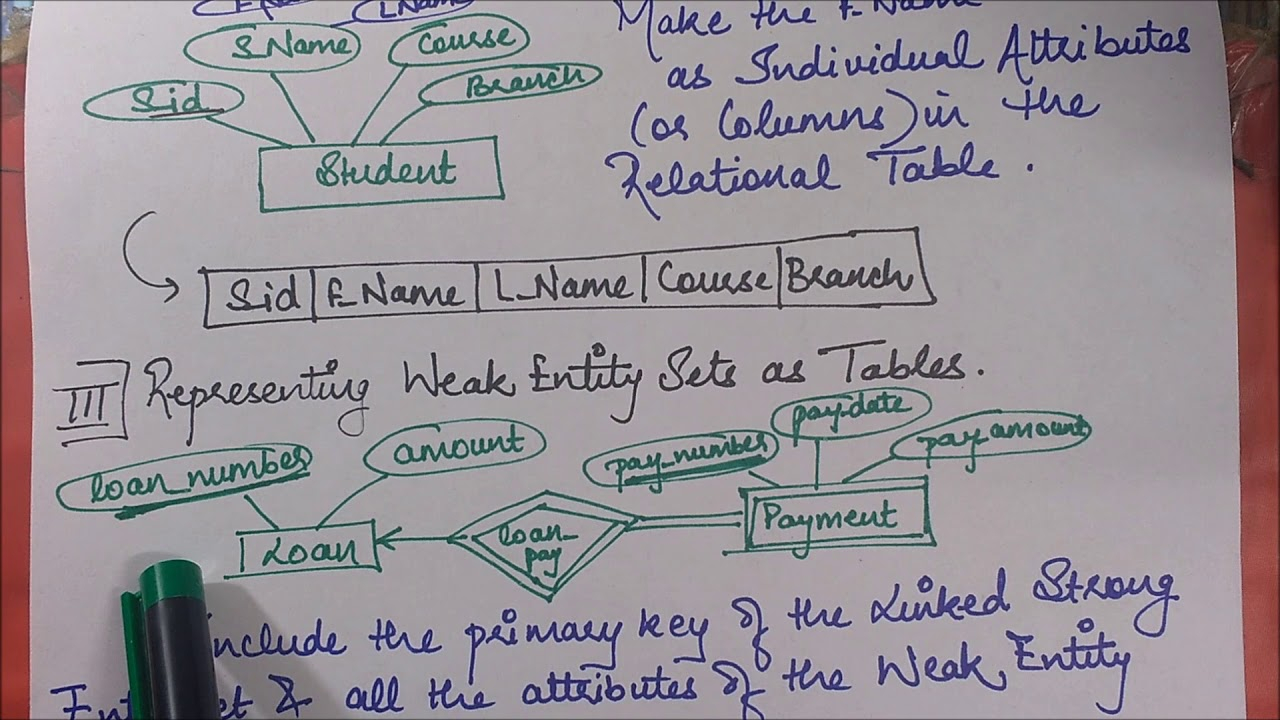 L_Name
Make the F_Name
S_Name
Course
as Individual Attributes
Sid
Branch
(or Columns) in the
Student
Relational Table.
Sid | F_Name | L_Name | Course | Branch
III Representing Weak Entity Sets as Tables.
loan_number
amount
pay_number
pay-date
pay_amount
Loan
loan_
pay
Payment
include the primary key of the Linked Strong
& all the attributes of the Weak Entity